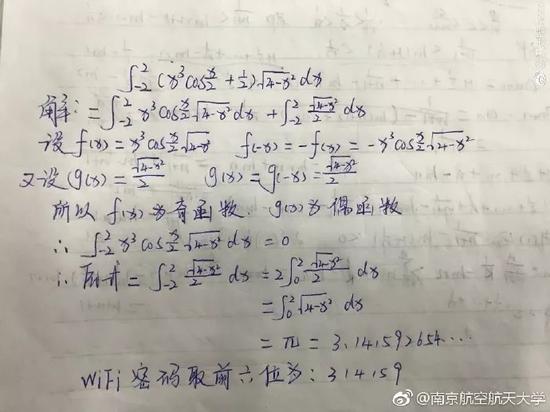 ∫_{-2}^{2} (x³cos x/2 + 1/2)√4-x² dx
解：= ∫_{-2}^{2} x³cos x/2 √4-x² dx + ∫_{-2}^{2} √4-x²/2 dx
设 f(x) = x³cos x/2 √4-x² f(-x) = -f(x) = -x³cos x/2 √4-x²
又设 g(x) = √4-x²/2 g(x) = g(-x) = √4-x²/2
所以 f(x)为奇函数. g(x)为偶函数
∴ ∫_{-2}^{2} x³cos x/2 √4-x² dx = 0
∴ 原式 = ∫_{-2}^{2} √4-x²/2 dx = 2∫_{0}^{2} √4-x²/2 dx
= ∫_{0}^{2} √4-x² dx
= π = 3.141592654···
WiFi 密码取前六位为：314159
@南京航空航天大学